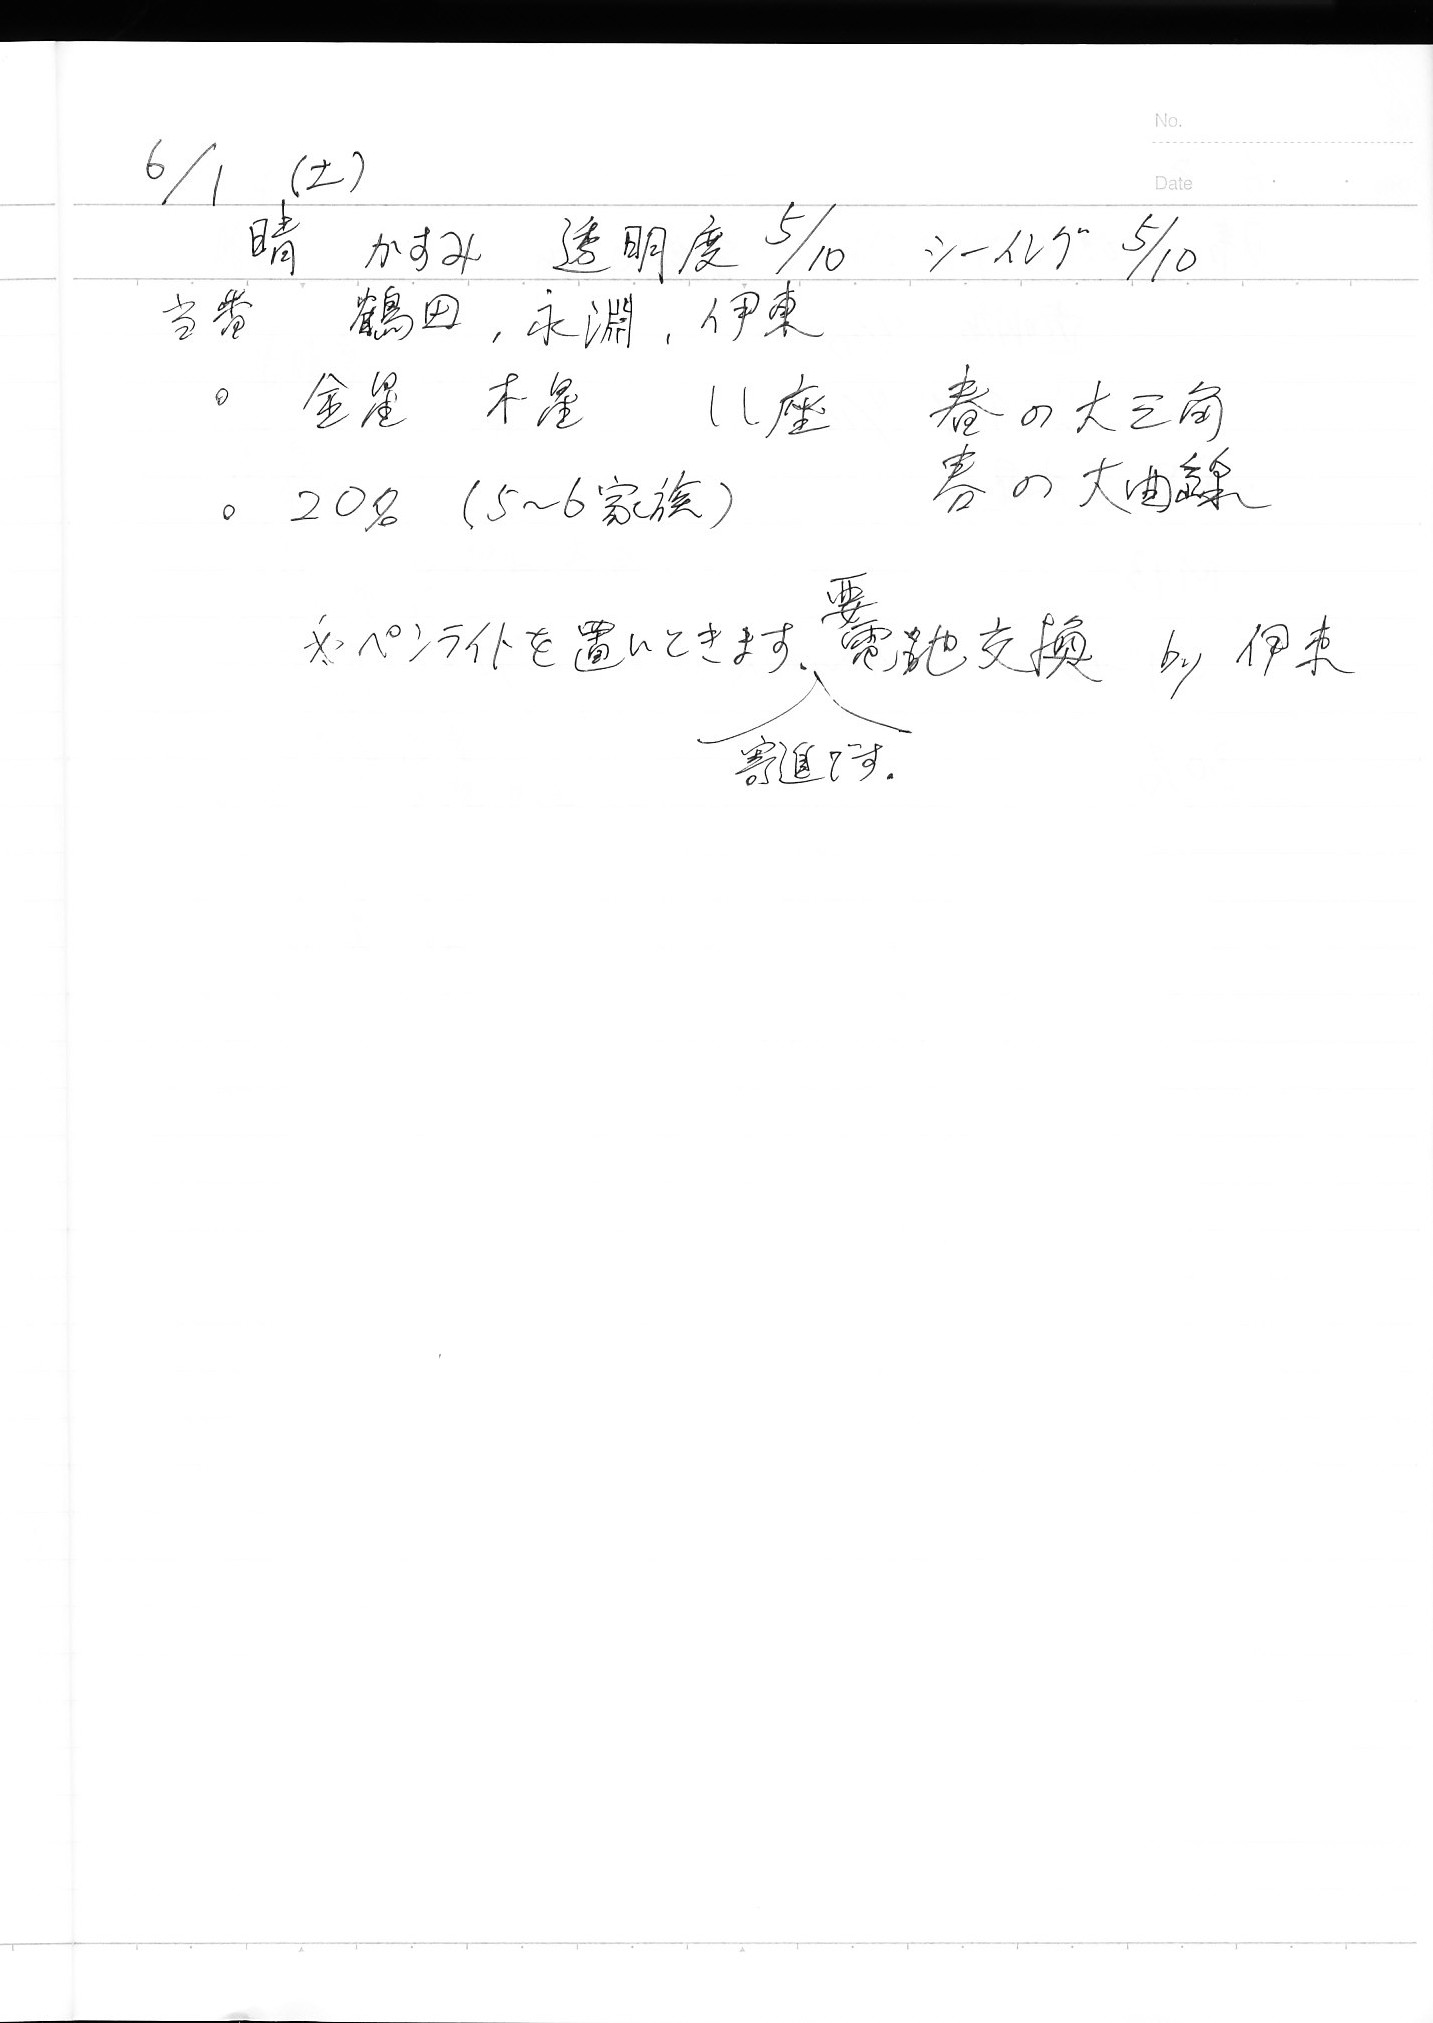 No.
Date
6/1 (土)
晴 かすみ 透明度 5/10 シーイング 5/10
当番 鶴田, 永淵, 伊東
。 金星 木星 しし座 春の大三角
春の大曲線
。 20名 (5~6家族)
※ペンライトを置いときます. 要電池交換 by 伊東
寄進です.